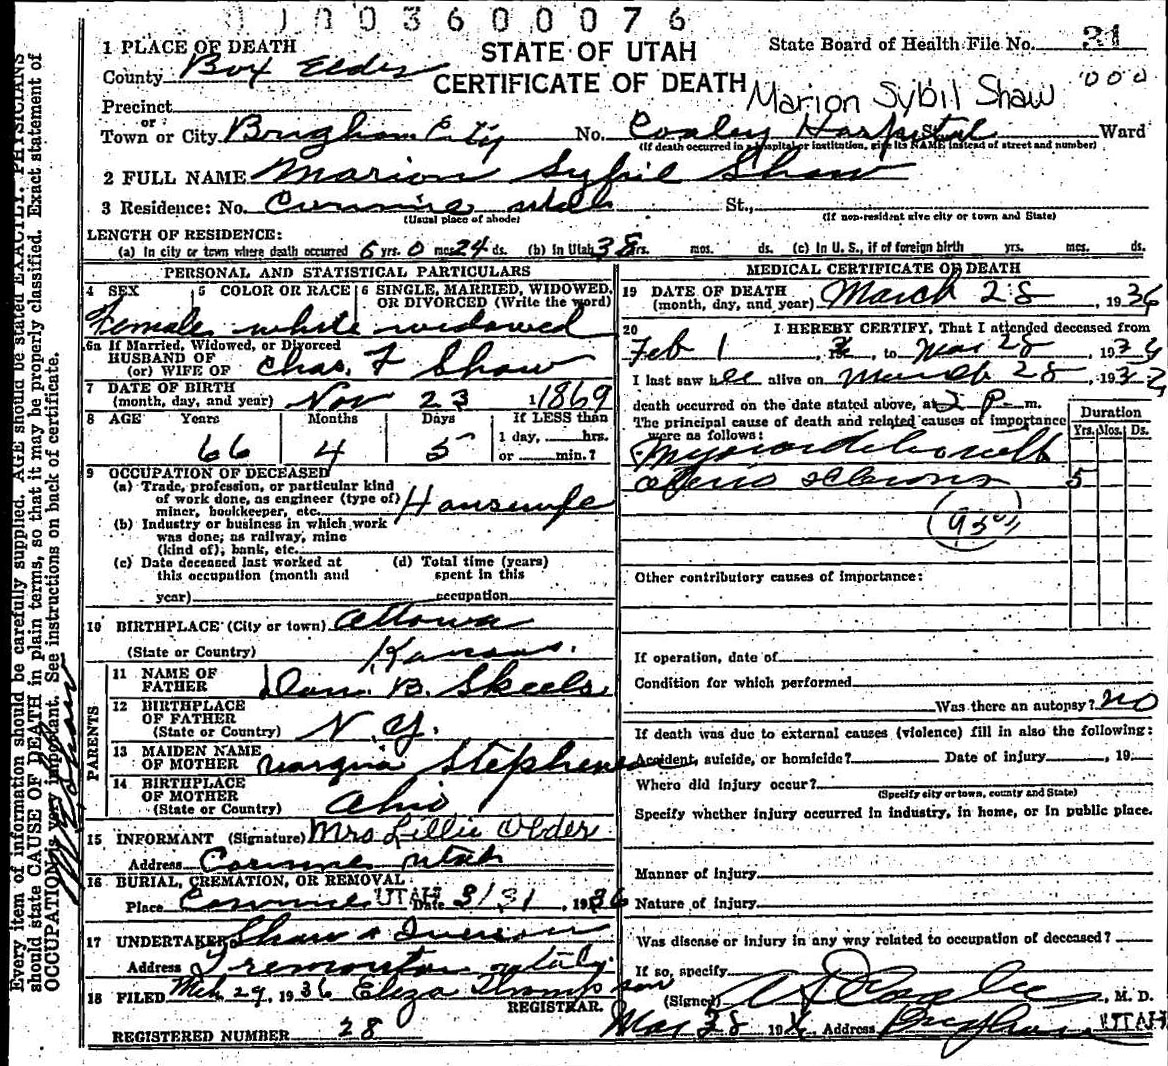 0 0 0 3 6 0 0 0 7 6
STATE OF UTAH
CERTIFICATE OF DEATH
State Board of Health File No. 31
000
Marion Sybil Shaw
1 PLACE OF DEATH
County Box Elder
Precinct
or
Town or City Brigham City No. Cooley Hospital St. Ward
(If death occurred in a hospital or institution, give its NAME instead of street and number)
2 FULL NAME Marion Sybil Shaw
3 Residence: No. Corinne Utah St.,
(Usual place of abode) (If non-resident give city or town and State)
LENGTH OF RESIDENCE:
(a) In city or town where death occurred 6 yrs. 0 mos. 24 ds. (b) In Utah 38 yrs. mos. ds. (c) In U. S., if of foreign birth yrs. mos. ds.
PERSONAL AND STATISTICAL PARTICULARS
4 SEX 5 COLOR OR RACE 6 SINGLE, MARRIED, WIDOWED, OR DIVORCED (Write the word)
Female white widowed
6a If Married, Widowed, or Divorced
HUSBAND OF
(or) WIFE OF Chas. F Shaw
7 DATE OF BIRTH
(month, day, and year) Nov 23 1869
8 AGE Years Months Days If LESS than
66 4 5 1 day, hrs.
or min.?
9 OCCUPATION OF DECEASED
(a) Trade, profession, or particular kind
of work done, as engineer (type of)
miner, bookkeeper, etc. Housewife
(b) Industry or business in which work
was done; as railway, mine
(kind of); bank, etc.
(c) Date deceased last worked at
this occupation (month and
year)
(d) Total time (years)
spent in this
occupation
10 BIRTHPLACE (City or town) Ottowa
(State or Country) Kansas.
PARENTS
11 NAME OF
FATHER Dan. B. Skeels
12 BIRTHPLACE
OF FATHER
(State or Country) N. Y.
13 MAIDEN NAME
OF MOTHER Stephenson
14 BIRTHPLACE
OF MOTHER
(State or Country) Ohio
15 INFORMANT (Signature) Mrs Lillie Older
Address Corinne Utah
16 BURIAL, CREMATION, OR REMOVAL
Place Corinne UTAH Date 3/31, 1936
17 UNDERTAKER Shaw & Iverson
Address Tremonton Utah
18 FILED Mch 29, 1936 Eliza Thompson
REGISTRAR.
REGISTERED NUMBER 28
MEDICAL CERTIFICATE OF DEATH
19 DATE OF DEATH
(month, day, and year) March 28, 1936
20 I HEREBY CERTIFY, That I attended deceased from
Feb 1 to Mar 28, 1936
I last saw her alive on March 28, 193
death occurred on the date stated above, at 2 P. m.
The principal cause of death and related causes of importance
were as follows:
Duration
Yrs. Mos. Ds.
sclerosis 5
Other contributory causes of importance:
If operation, date of
Condition for which performed
Was there an autopsy? no
If death was due to external causes (violence) fill in also the following:
Accident, suicide, or homicide? Date of injury , 19
Where did injury occur?
(Specify city or town, county and State)
Specify whether injury occurred in industry, in home, or in public place.
Manner of injury
Nature of injury
Was disease or injury in any way related to occupation of deceased?
If so, specify
(Signed) , M. D.
Mar 28 19 Address Brigham UTAH
Every item of information should be carefully supplied. AGE should be stated EXACTLY. PHYSICIANS
should state CAUSE OF DEATH in plain terms, so that it may be properly classified. Exact statement of
OCCUPATION is very important. See instructions on back of certificate.